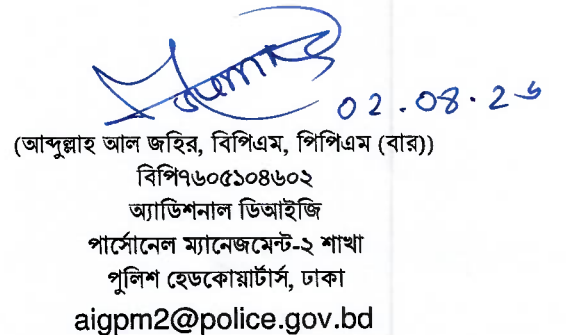 ০২.০৪.২৬
(আব্দুল্লাহ আল জহির, বিপিএম, পিপিএম (বার))
বিপি৭৬০৫১০৪৬০২
অ্যাডিশনাল ডিআইজি
পার্সোনেল ম্যানেজমেন্ট-২ শাখা
পুলিশ হেডকোয়ার্টার্স, ঢাকা
aigpm2@police.gov.bd